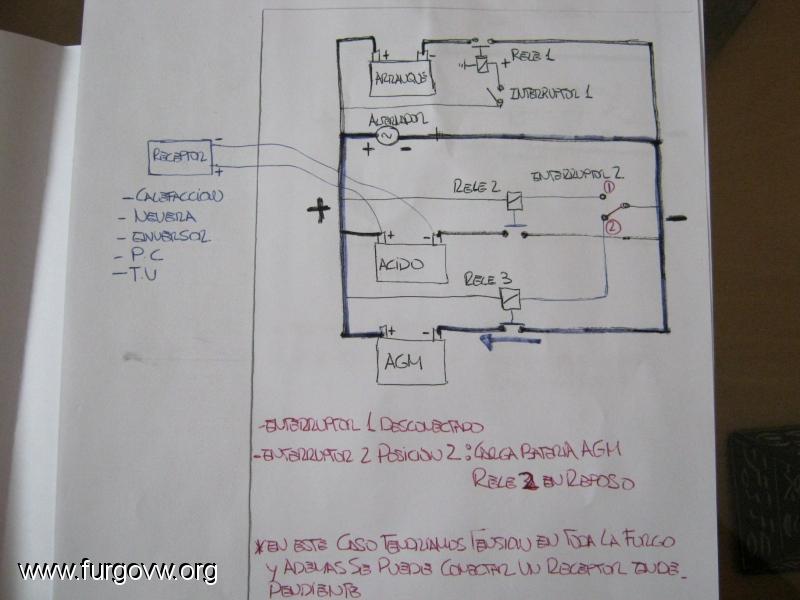 + -
ARRANQUE
RELE 1
+
INTERRUPTOR 1
ALTERNADOR
+ -
RECEPTOR
-
+
- CALEFACCION
- NEVERA
- INVERSOR
- P.C
- T.V
RELE 2
INTERRUPTOR 2
1
2
+
-
+ -
ACIDO
RELE 3
+ -
AGM
- INTERRUPTOR 1 DESCONECTADO
- INTERRUPTOR 2 POSICION 2: CARGA BATERIA AGM
RELE 2 EN REPOSO
* EN ESTE CASO TENDRIAMOS TENSION EN TODA LA FURGO
Y ADEMAS SE PUEDE CONECTAR UN RECEPTOR INDE-
PENDIENTE
www.furgovw.org